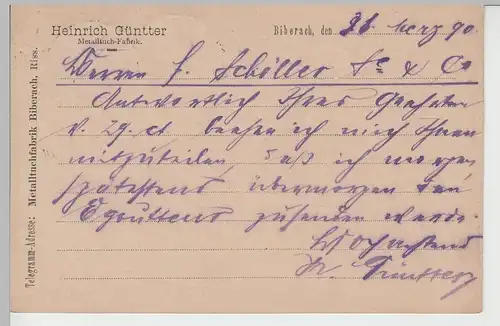 Heinrich Güntter
Metalltuch-Fabrik.
Biberach, den 31 Merz 90
Telegramm-Adresse: Metalltuchfabrik Biberach, Riss.
Herren H. Schöller Se & Co
Antwortlich Ihres Geehrten
v. 29. ct. beehre ich mich Ihnen
mitzuteilen, daß ich morgen
spätestens übermorgen den
Egoutteur zusenden werde.
Hochachtend
H. Güntter